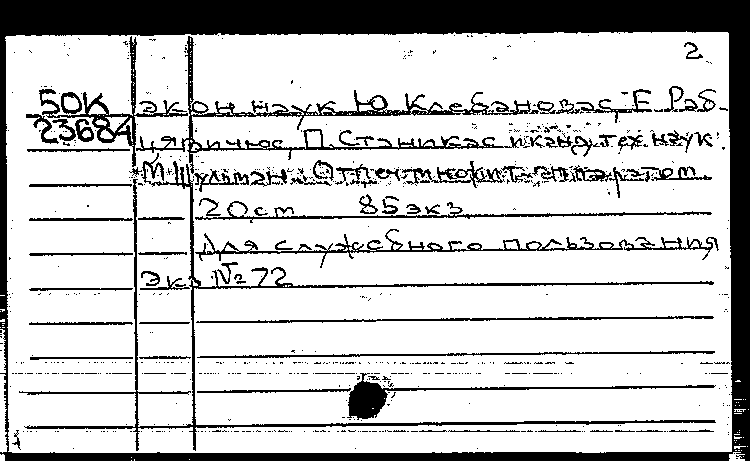 2
50К экон наук Ю Клебановас, Е Раб-
23684 цявичюс, П. Станикас и канд. тех наук.
М Шульман. Отпеч множит. аппаратом
20 ст 85 экз
Для служебного пользования
Экз № 72